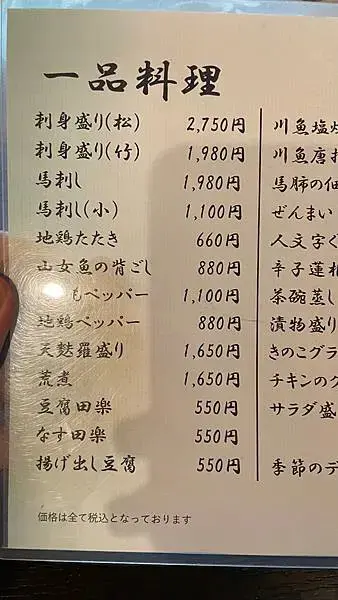 一品料理
刺身盛り(松) 2,750円
刺身盛り(竹) 1,980円
馬刺し 1,980円
馬刺し(小) 1,100円
地鶏たたき 660円
山女魚の背ごし 880円
もペッパー 1,100円
地鶏ペッパー 880円
天麩羅盛り 1,650円
荒煮 1,650円
豆腐田楽 550円
なす田楽 550円
揚げ出し豆腐 550円
価格は全て税込となっております
川魚塩
川魚唐
馬肺の佃
ぜんまい
人文字ぐ
辛子蓮
茶碗蒸し
漬物盛り
きのこグラ
チキンのグ
サラダ盛
季節のデ